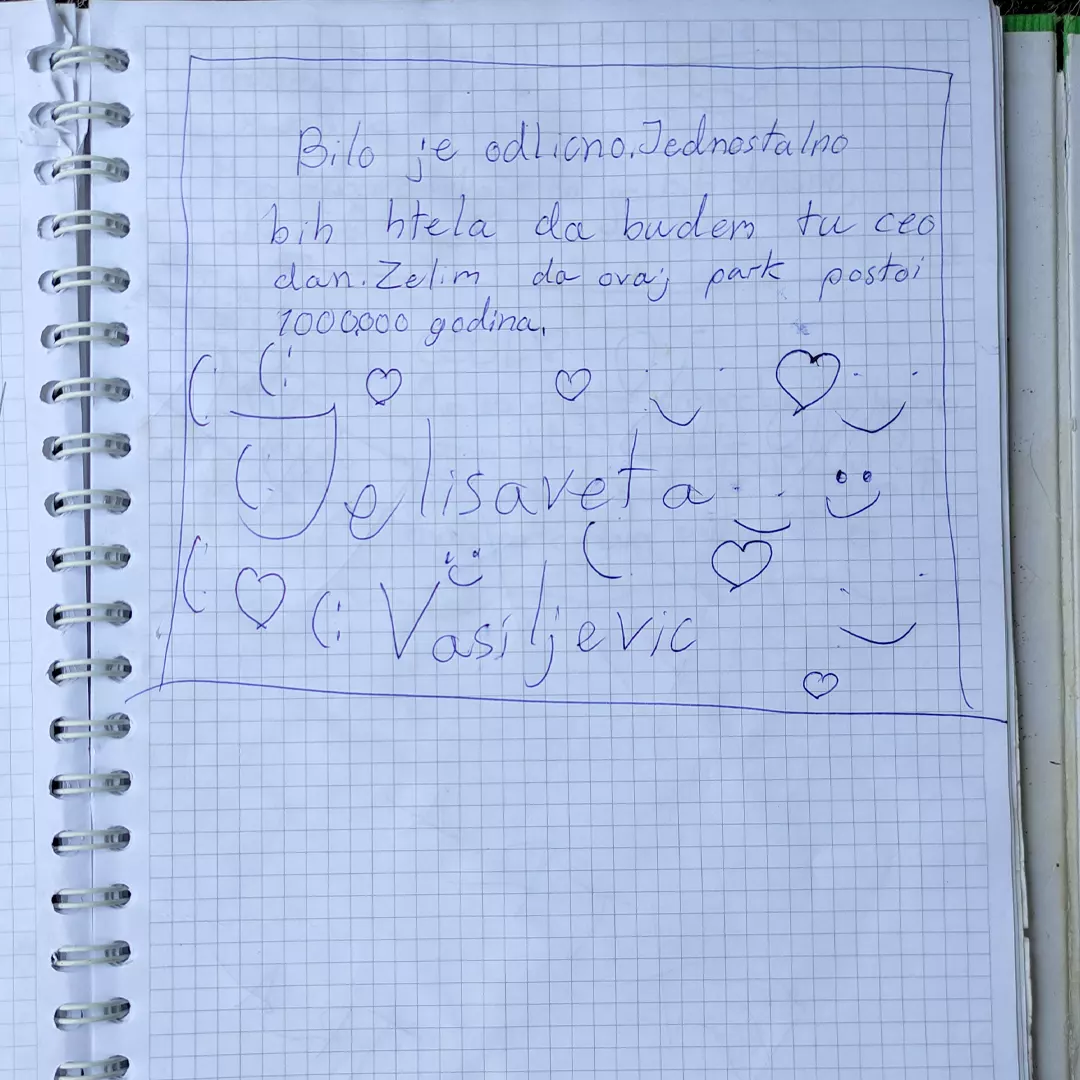 Bilo je odlicno. Jednostalno
bih htela da budem tu ceo
dan. Zelim da ovaj park postoi
1000,000 godina.
Jelisaveta
Vasiljevic